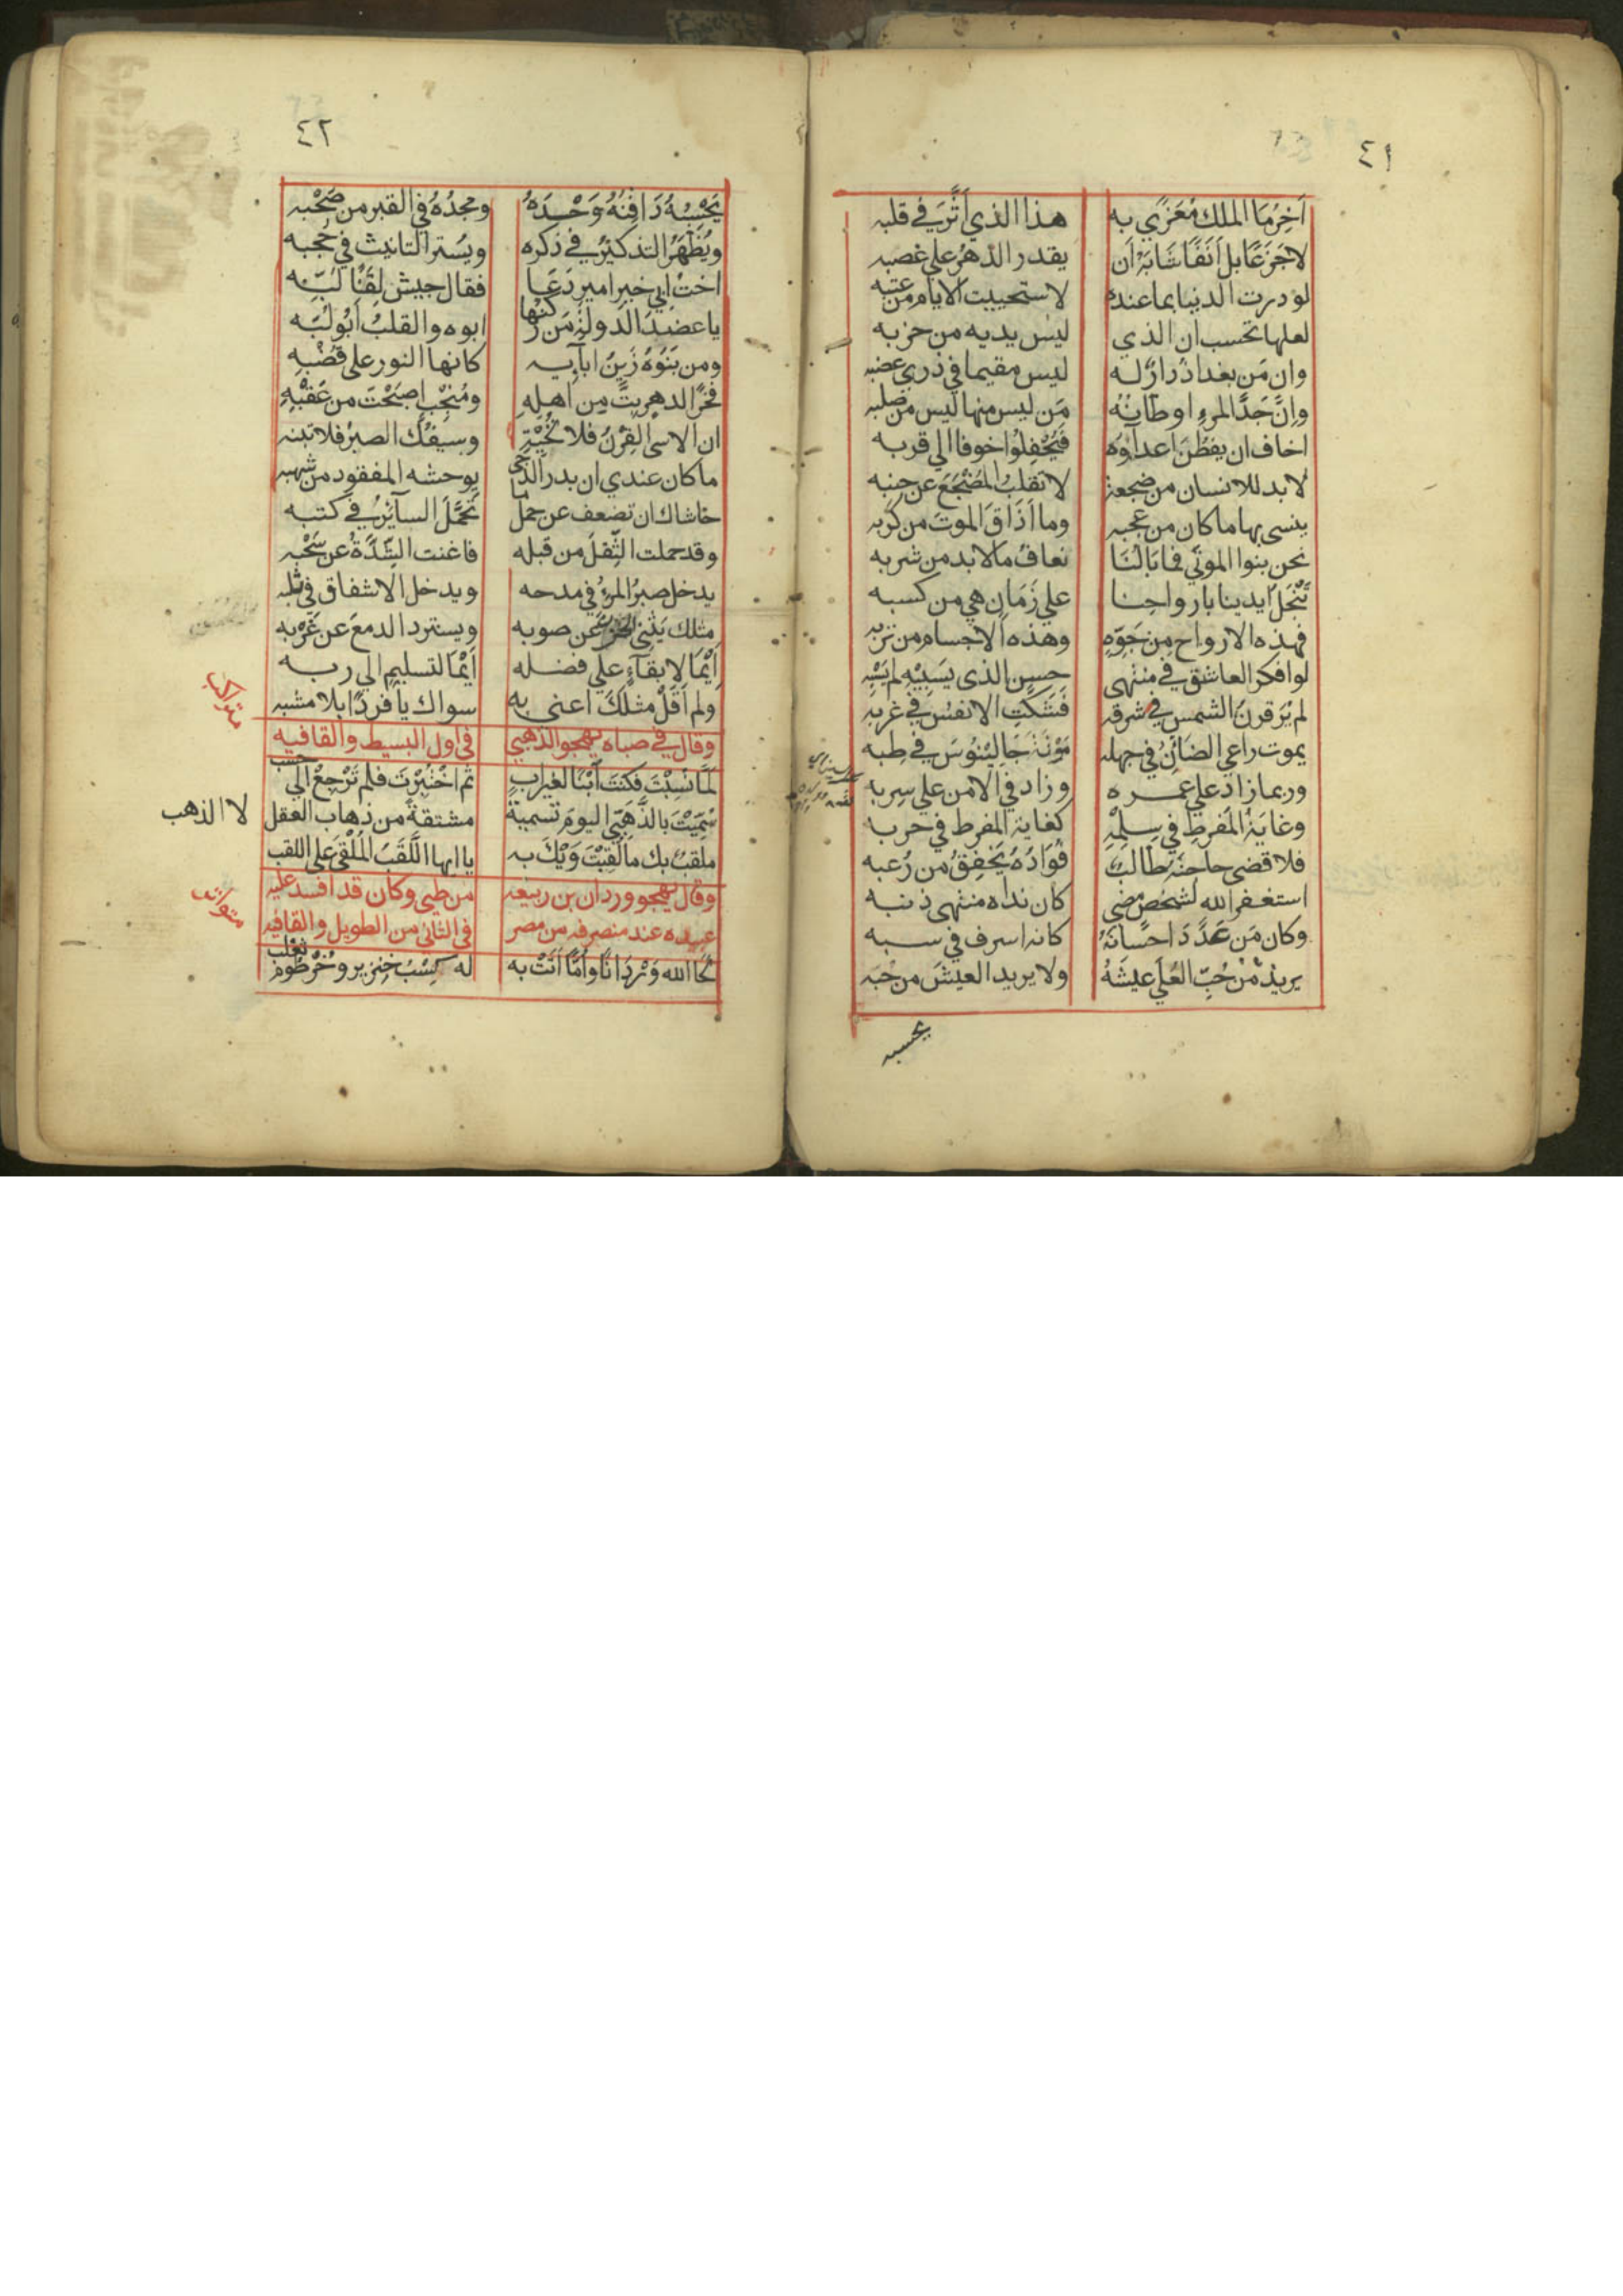 ٤١
آخِرُ مَا الملك مُعَزّي به هذا الذي اَثَّرَ في قلبه
لا جَزَعًا بل اَنَفًا شَابَهُ اَن يقدر الدهرُ علي غصبه
لو درت الدنيا بما عنده لاستحييت الايام من عتبه
لعلها تحسب ان الذي ليس يديه من حزبه
وان مَن بغداذُ دارٌ له ليس مقيما في ذري عضبه
وانَّ جَدَّ المرءِ اوطانُهُ مَن ليس منها ليس من صلبه
اخاف ان يفطن اعداؤه فَيُجْفِلُوا خوفا الي قربه
لا بد للانسان من ضجعة لا تقلبُ المُضْجَعَ عن جنبه
ينسي بها ما كان من عجبه وما اَذَاقَ الموتُ من كربه
نحن بنوا الموتَي فما بَالُنَا نعافُ ما لا بد من شربه
تَبْخَلُ ايدينا بارواحنا علي زَمَانٍ هي من كسبه
فهذه الارواح مِن جَوِّهِ وهذه الاجسام من تربه
لو افكر العاشق في منتهي حسن الذي يَسْبِيْهِ لم يَسْبِهِ
لم يُرَ قرنُ الشمس في شرقه فَشَكَّتِ الانفُس في غربه
يموت راعي الضأنِ في جهله مَوْتَةَ جَالِيْنُوْسَ في طِبه
وربما زاد علي عمره وزاد في الامن علي سِربه
وغايةُ المُفرِطِ في سِلمِهِ كغاية المفرط في حربه
فلا قضي حاجتَه طالبٌ فُوَادُهُ يَخفِقُ من رُعبه
استغفر الله لشخص مضي كان نداه منتهي ذنبه
وكان مَن عَدَّدَ احسانَهُ كانه اسرف في سبه
يريد مِنْ حُبِّ العُلَي عيشَهُ ولا يريد العيشَ من حُبه
يحسبه
٤٢
يَحْسِبُهُ دَافِنُهُ وَحْدَهُ ومجدُهُ في القبر من صَحْبِه
ويُظْهَرُ التذكيرُ في ذكره ويُستر التانيث في حُجبه
اختُ ابي خيرِ اميرٍ دَعَا فقال جيش لِقَنًا لَبِّه
يا عضدَ الدولة مَن رُكنُها ابوه والقلبُ اَبُو لُبِّه
ومن بَنُوْهُ زَيْنُ ابآيه كانها النور علي قُضْبِهِ
فخرًا لدهرٍ بِتَّ مِن اهلِهِ ومُنْجِبٍ اصبَحْتَ من عَقْبِهِ
ان الاسي القِرْنُ فلا تُحْيِهِ وسيفُكَ الصبرُ فلا تنبه
ما كان عندي ان بدر الدُّجي يوحشه المفقود من شهبه
حاشاك ان تضعف عن حمل ما تَحَمَّلَ السآئرُ في كتبه
وقد حملت الثِّقلَ من قبله فاغنت الشِّدَّةُ عن سَحْبِه
يدخل صبرُ المرءِ في مدحه ويدخل الاشفاق في ثلبه
مثلك يَثْنِي الحزن عن صوبه ويسترد الدمعَ عن غَرْبِه
اَيْمَا لابقآءٍ علي فضله اَيْمَا لتسليمٍ الي ربه
ولم اَقُلْ مثلُكَ اعني به سواك يا فردًا بلا مشبه
وقال في صباه يهجو الذهبي في اول البسيط والقافيه
متراكب
لَمَّا نُسِبْتَ فكنتَ اَبْنًا لغيراَبٍ ثم اخْتُبِرْتَ فلم تَرْجِعْ الي حسب
سُمِّيْتَ بالذَّهَبِيّ اليومَ تسميةً مشتقةً من ذهاب العقل لا الذهب
ملقبٌ بك ما لُقِّبْتَ وَيْكَ به يا ايها اللَّقَبُ المُلْقَي علي اللقب
وقال يهجو وردان بن ربيعه من طيي وكان قد افسد عليه
عبيده عند منصرفه من مصر في الثاني من الطويل والقافيه
متواتر
لَحَا الله وَرْدَانًا وأمًّا اَتَتْ به له كسْبُ خنزيرٍ وخُرْطُومُ ثعلب